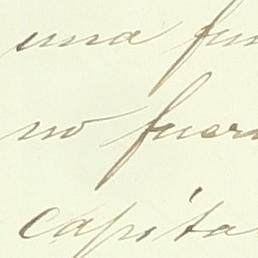 una fun
no fuera
capital